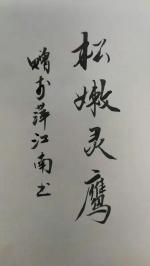 松嫩灵鹰
赠于萍江南书